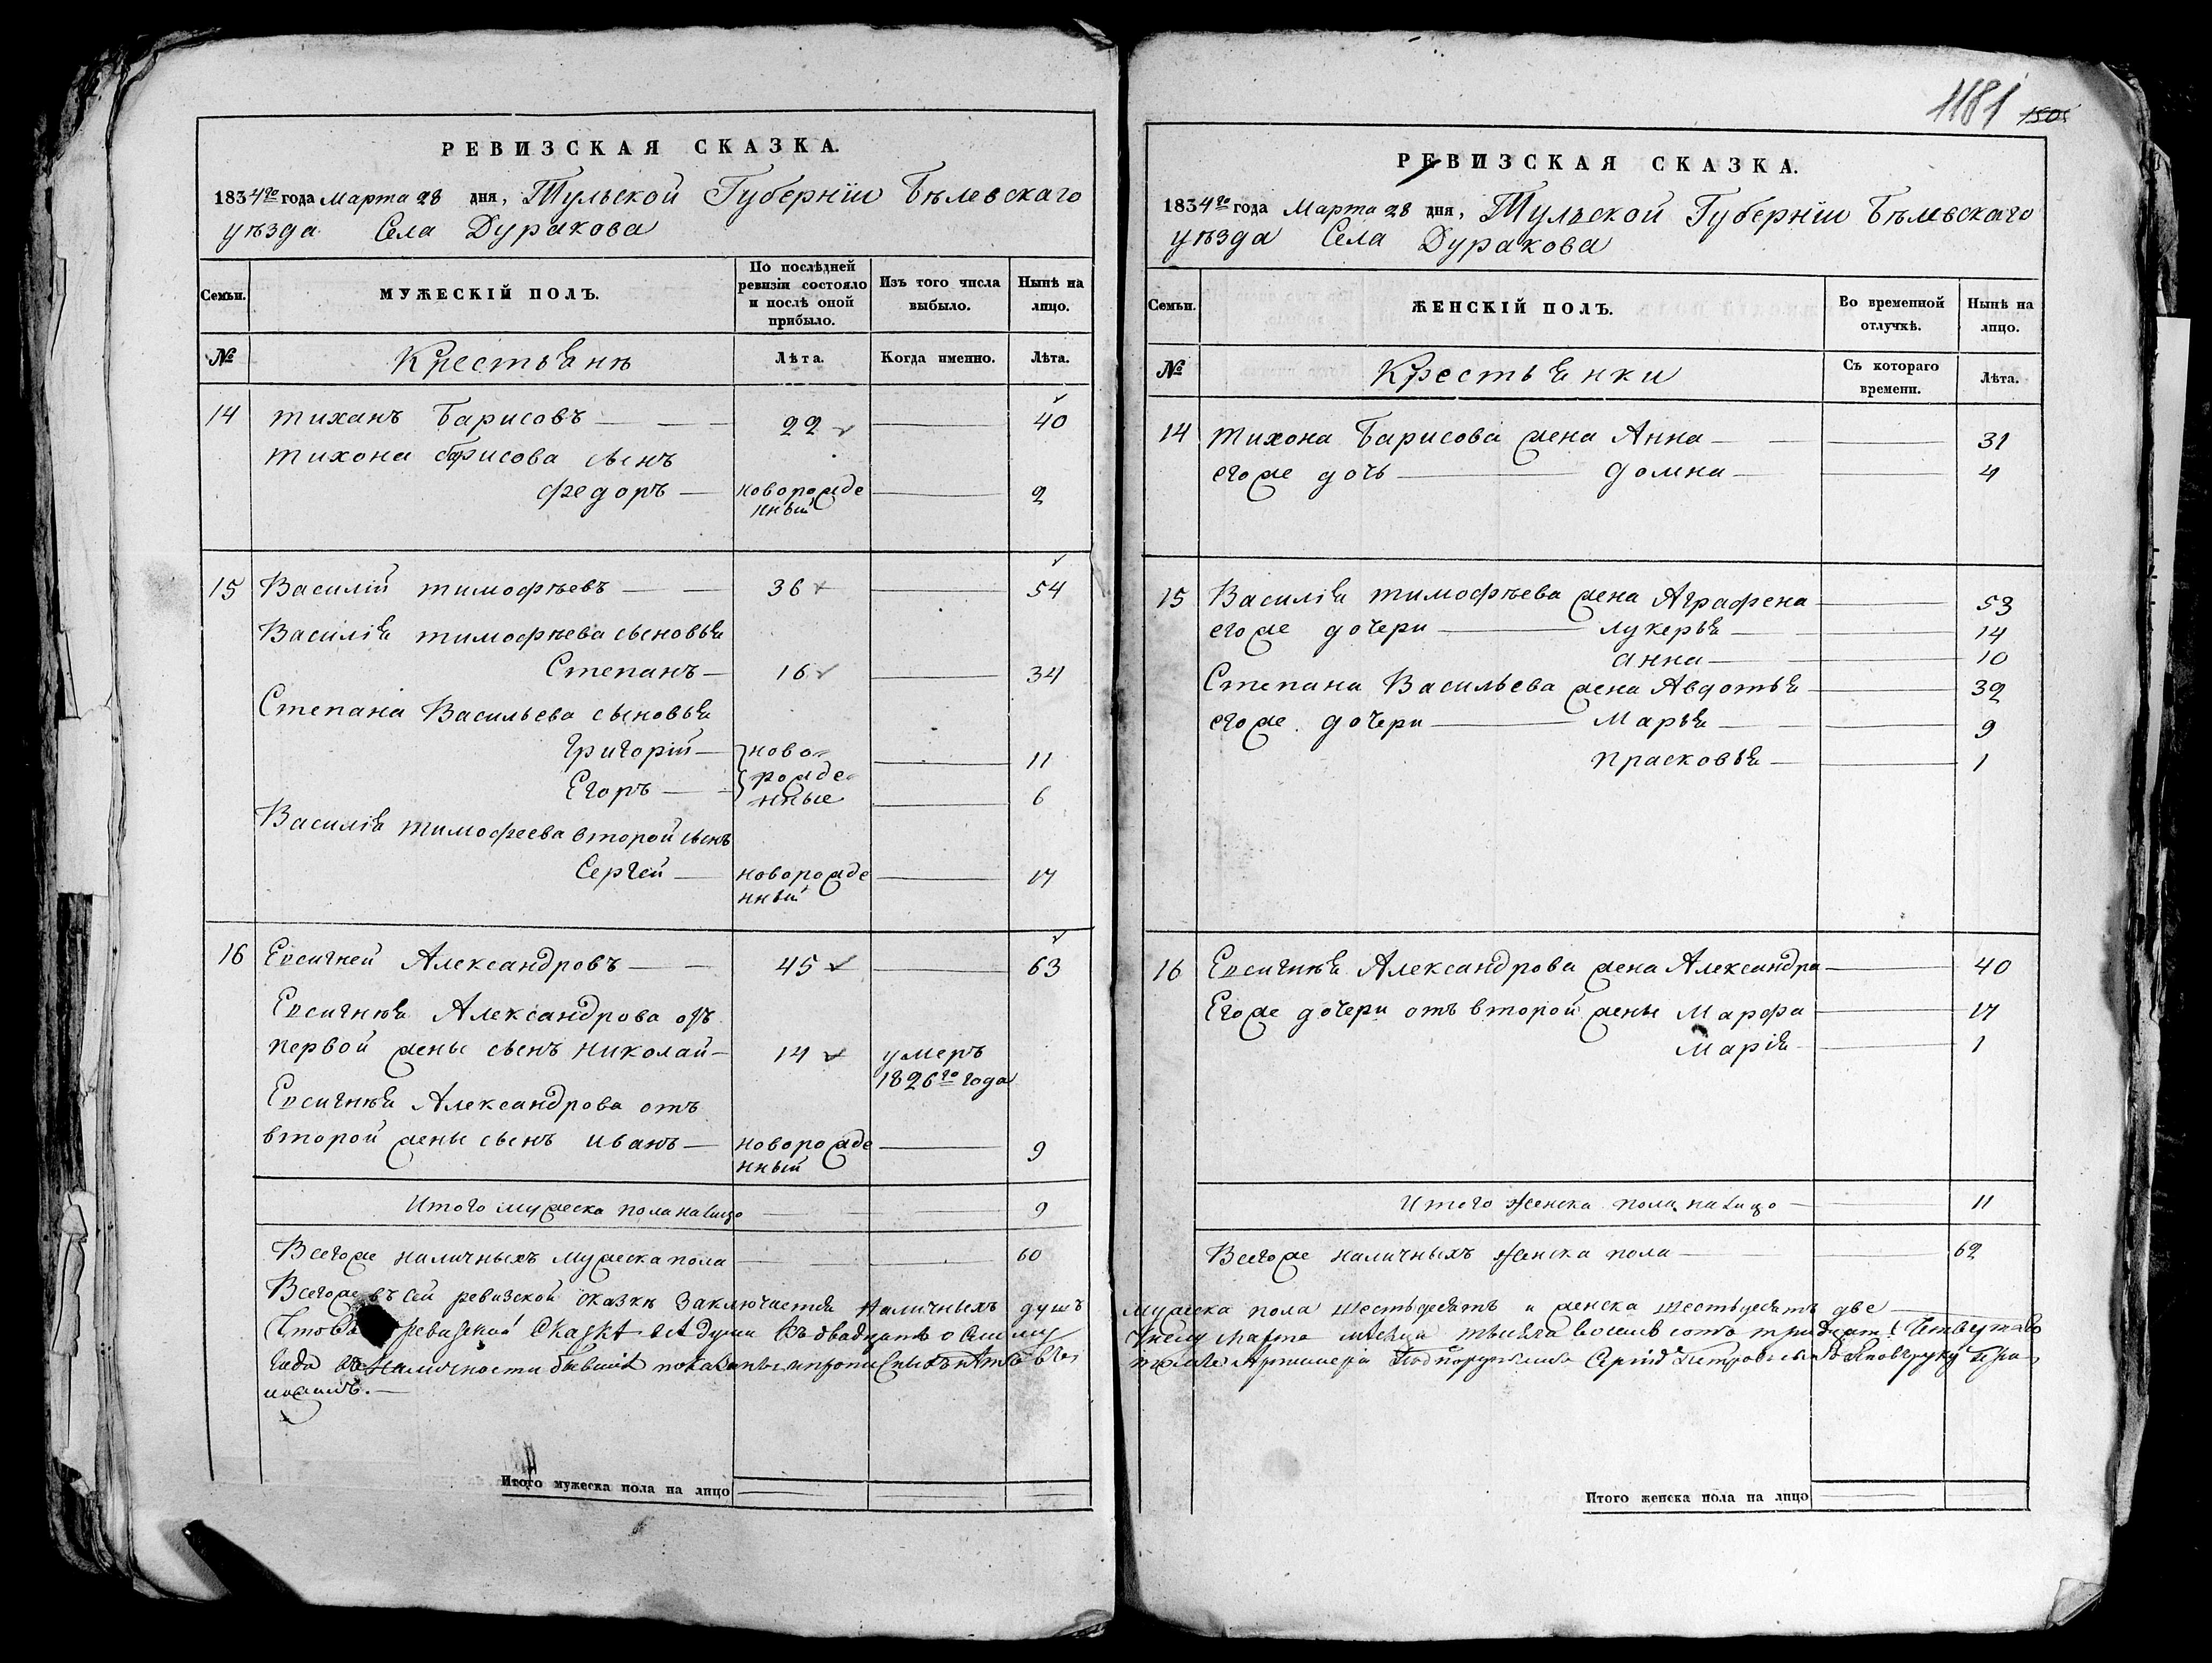 РЕВИЗСКАЯ СКАЗКА.
1834го года Марта 28 дня, Тульской Губернiи Бѣлевскаго
уѣзда Села Дуракова
Семьи.
МУЖЕСКIЙ ПОЛЪ.
По послѣдней
ревизiи состояло
и послѣ оной
прибыло.
Изъ того числа
выбыло.
Нынѣ на
лицо.
№ Крестьянѣ Лѣта. Когда именно. Лѣта.
14 Тиханъ Барисовъ 22 40
Тихона барисова сынъ
Федоръ новорожде 2
нный
15 Василiй тимофѣевъ 36 54
Василiя тимофѣева сыновья
Степанъ 16 34
Степана Васильева сыновья
Григорiй ново 11
рожде
Егоръ нные 6
Василiя тимофеева второй сынъ
Сергей новорожде 17
нный
16 Евсигней Александровъ 45 63
Евсигнѣя Александрова отъ
первой жены сынъ николай 14 умеръ
1826го года
Евсигнѣя Александрова отъ
второй жены сынъ иванъ новорожде 9
нный
Итого мужеска пола налицо 9
Всегоже наличныхъ мужеска пола 60
Всегоже въ сей ревизской сказкѣ заключается наличныхъ душъ
ревизской Сказкѣ всѣ души къ двадцать осмому
года наличности бывшiя показаны и прописныхъ нѣтъ въ
Итого мужеска пола на лицо
1181 150
РЕВИЗСКАЯ СКАЗКА.
1834го года Марта 28 дня, Тульской Губернiи Бѣлевскаго
уѣзда Села Дуракова
Семьи.
ЖЕНСКIЙ ПОЛЪ.
Во временной
отлучкѣ.
Нынѣ на
лицо.
№ Крестьянки
Съ котораго
времени.
Лѣта.
14 Тихона Барисова жена Анна 31
егоже дочь домна 4
15 Василiя тимофѣева жена Аграфена 53
егоже дочери лукерья 14
анна 10
Степана Васильева жена Авдотья 32
егоже дочери Марья 9
прасковья 1
16 Евсигнѣя Александрова жена Александра 40
Егоже дочери отъ второй жены Марфа 17
Марiя 1
Итого женска пола налицо 11
Всегоже наличныхъ женска пола 62
мужеска пола шестьдесятъ и женска шестьдесятъ две
числу марта месяца тысяча восемь сотъ тридцать Четверта
Артилерiи Подпорутчикъ Сергiй Петровъ сынъ руку
Итого женска пола на лицо